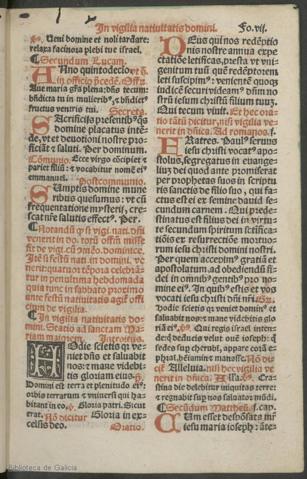 In vigilia natiuitatis domini. Fo. vij.
℣. Ueni domine et noli tardare:
relaxa facinora plebi tue israel.
Secundum Lucam.
Ano quintodecio vt
in officio pcedē. Off.
Aue maria grā plena: dn̄s tecum:
bn̄dicta tu in mulieribꝰ, ⁊ bn̄dictꝰ
fructus ventris tui. Secreta.
Sacrificijs presentibꝰ qs
domine placatus intē-
de, vt et deuotioni nostre pro-
ficiāt ⁊ saluti. Per dominum.
Cōmunio. Ecce virgo cōcipiet ⁊
pariet filiū: ⁊ vocabitur nomē eiꝰ
emmanuel. Postcommunio.
Sumptis domine mune
ribus quesumus: vt cū
frequentatione mysterij, cre-
scat nr̄e salutis effectꝰ. Per.
Notandū ꝙ si vigi. nati. dn̄i
venerit in do. totū offm̄ misse
Itē si festū nati. in domini. ve-
nerit: quatuor tēpora celebrā
tur in penultima hebdomada
quia tunc in sabbato proximo
ante festū natiuitatis agit offi
cium de vigilia.
In vigilia natiuitatis do-
mini. Statio ad sanctam Ma-
riam maiorem. Introitus.
Hodie scietis qꝛ ve-
niet dn̄s et saluabit
nos: ⁊ mane videbi-
tis gloriam eius. ps.
Domini est terra et plenitudo eiꝰ:
orbis terrarum ⁊ vniuersi qui ha-
bitant in eo. Gloria patri. Sicut
erat. Nō dicitur Gloria in ex-
celsis deo. Oratio.
Deus qui nos redēptio
nis nostre annua expe-
ctatiōe letificas, presta vt vni-
genitum tuū quē redēptorem
leti suscipimꝰ: veniente quoqꝫ
iudicē securi videamꝰ, dn̄m no
strū iesum christū filium tuum.
Qui tecum viuit. Et hec ora-
tio tātū dicitur, nisi vigilia ve-
nerit in dn̄ica. Ad romanos.
Fratres. Paulꝰ seruus
iesu christi vocatꝰ apo-
stolus, segregatus in euangeliū
dei quod ante promiserat
per prophetas suos in scriptu
ris sanctis de filio suo, qui fa-
ctus est ei ex semine dauid se-
cundum carnem. Qui prede-
stinatus est filius dei in virtu-
te secundum spiritum sctifica-
tiōis ex resurrectiōe mortuo-
rum iesu christi domini nostri.
Per quem accepimꝰ gratiā et
apostolatum, ad obediendū fi-
dei in omnibꝰ gentibꝰ pro no-
mine eiꝰ. In quibꝰ estis et vos
vocati iesu christi dn̄i nr̄i. Gr.
Hodie scietis qꝛ veniet dominꝰ et
saluabit nos: ⁊ mane videbitis glo
riā eiꝰ. ℣. Qui regis israel inten-
de: q̄ deducis velut ouē ioseph: q̄
sedes sup cherubī, appare corā e-
phraī, beniamin ⁊ manasse. Nō di-
citur Alleluia, nisi hec vigilia ve-
nerit in dn̄ica. Alla. ℣. Cra-
stina die delebitur iniquitas terre:
⁊ regnabit sup nos saluator mūdi.
Secūdum Mattheū. j. cap.
Cum esset desponsata mr̄
iesu maria ioseph: āte-
Biblioteca de Galicia